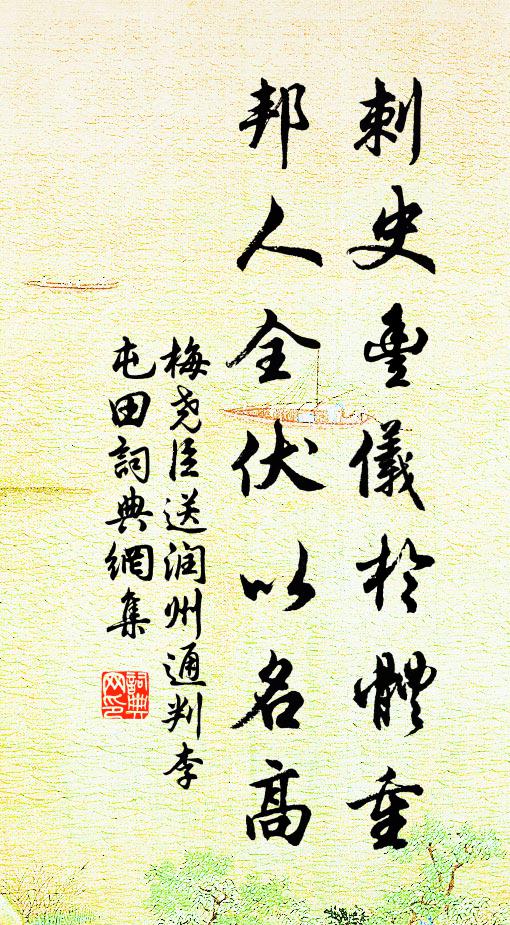 刺史豊儀於體重
邦人全伏以名高
梅尧臣送润州通判李
屯田詞典網集
詞典网印